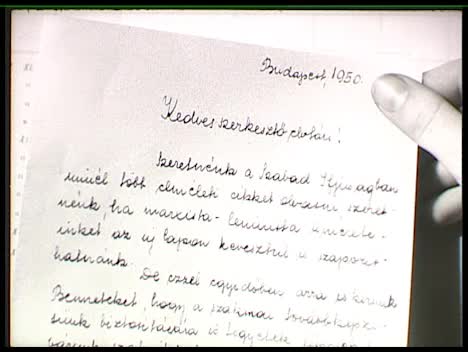 Budapest, 1950.
Kedves szerkesztő elvtárs!
Szeretnénk a Szabad Ifjuságban
minél több elméleti cikket olvasni, szeret-
nénk, ha marxista-leninista ismerete-
inket az uj lapon keresztül is szaporit-
hatnánk. De ezzel egyidőben arra is kérünk
Benneteket, hogy a szakmai továbbképzé-
sünk biztositására is